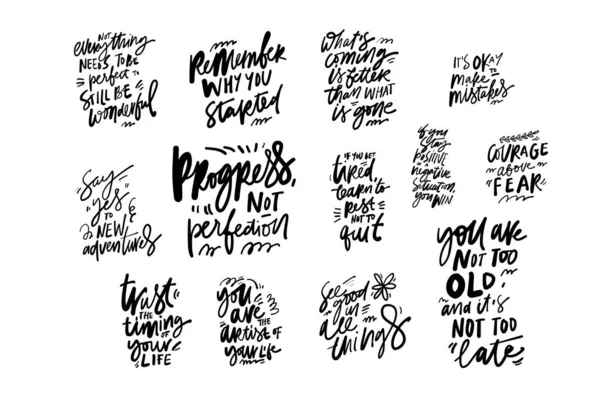 NOT
everything
NEEDS TO BE
perfect to
STILL BE
wonderful
Remember
WHY YOU
started
What's
coming
is better
than WHAT
is gone
IT'S OKAY
TO
make
mistakes
Say
"yes"
TO
NEW
adventures
Progress,
NOT
perfection
IF YOU GET
tired,
learn to
REST
NOT TO
quit
if you
stay
POSITIVE
IN A
negative
situation,
you WIN
COURAGE
above
FEAR
trust
THE
timing
OF
your
LIFE
you
ARE
THE
artist OF
your life
see
good
in
all
things
you are
NOT TOO
OLD,
and it's
NOT TOO
late